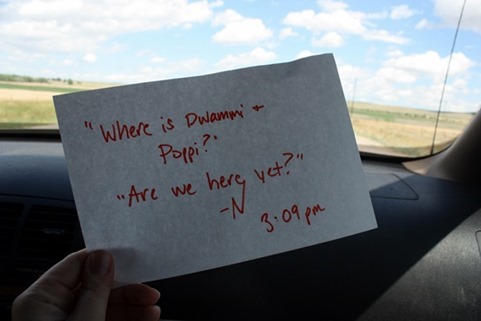 "Where is Dwammi +
Poppi?"
"Are we here yet?"
-N
3:09 pm